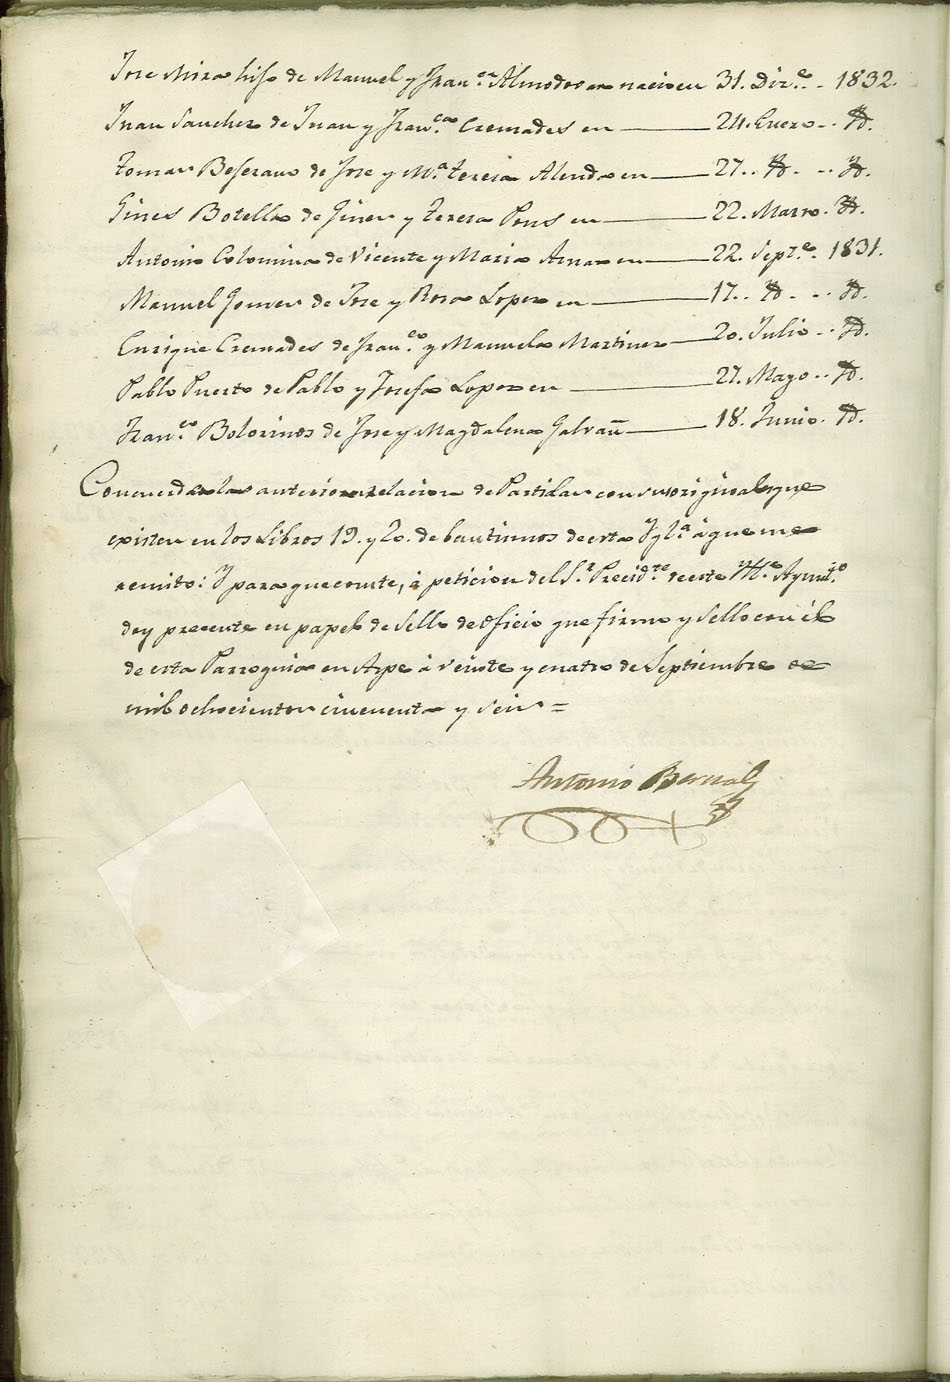 Jose Mira hijo de Manuel y Fran.ca Almodovar nacio en 31. Dize. - 1832.
Juan Sanchez de Juan y Fran.ca Cremades en — 24. Enero - - Yd.
Tomas Beferano de Jose y M.a Teresa Alenda en — 27. . Yd. - . . Yd.
Gines Botella de Gines y Teresa Pons en — 22. Marzo. Yd.
Antonio Colomina de Vicente y Maria Aznar en — 22. Septe. - 1831.
Manuel Gomes de Jose y Rosa Lopez en — 17. . Yd. - . . Yd.
Enrique Cremades de Fran.co y Manuela Martinez — 20. Julio - . Yd.
Pablo Puerto de Pablo y Josefa Lopez en — 27. Mayo - . Yd.
Fran.co Bolorinos de Jose y Magdalena Galvañ — 18. Junio. Yd.
Concuerda la anterior relacion de Partidas con sus originales que
existen en los Libros 19. y 20. de bautismos de esta Ygl.a á que me
remito: Y para que conste, á peticion del S.r Presid.te de este Yt.e Ayunt.o
doy precente en papel de Sello de Oficio que firmo y sello con él
de esta Parroquia en Aspe á veinte y cuatro de Septiembre de
mil ochocientos cincuenta y seis =
Antonio Bernal